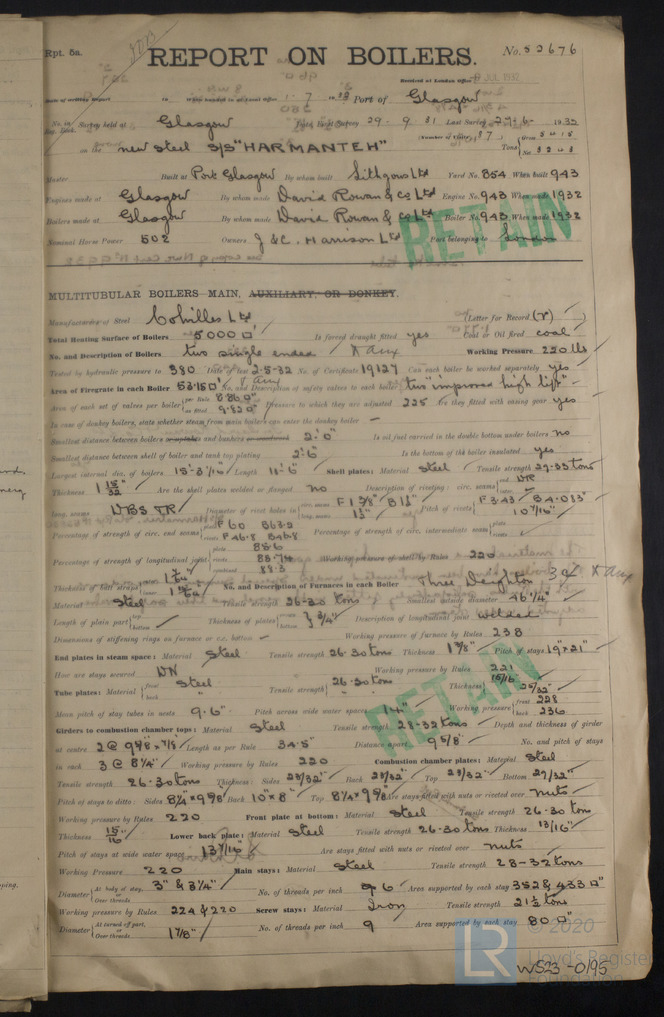 Rpt. 5a.
REPORT ON BOILERS.
No. 52676
Received at London Office JUL 1932
Date of writing Report 19 When handed in at Local Office 1.7.1932 Port of Glasgow
No. in Survey held at Glasgow Date, First Survey 29-9-31 Last Survey 29-6-1932
on the new steel S/S "HARMANTEH" (Number of Visits 87) Tons Gross Net
Master Built at Port Glasgow By whom built Lithgows Ltd Yard No. 854 When built 943
Engines made at Glasgow By whom made David Rowan & Co Ltd Engine No. 943 When made 1932
Boilers made at Glasgow By whom made David Rowan & Co Ltd Boiler No. 943 When made 1932
Nominal Horse Power 502 Owners J & C. Harrison Ltd Port belonging to London
RETAIN
MULTITUBULAR BOILERS MAIN, AUXILIARY, OR DONKEY.
Manufacturer of Steel Colvilles Ltd (Letter for Record (r))
Total Heating Surface of Boilers 5000 □' Is forced draught fitted yes Coal or Oil fired coal
No. and Description of Boilers two single ended X aux Working Pressure 220 lbs
Tested by hydraulic pressure to 380 Date of test 2-5-32 No. of Certificate 19127 Can each boiler be worked separately yes
Area of Firegrate in each Boiler 53.150' No. and Description of safety valves to each boiler two "improved high lift"
Area of each set of valves per boiler per Rule 8.86 □" as fitted 9.82 □" Pressure to which they are adjusted 225 Are they fitted with easing gear yes
In case of donkey boilers, state whether steam from main boilers can enter the donkey boiler
Smallest distance between boilers or uptakes and bunkers or woodwork 2'-0" Is oil fuel carried in the double bottom under boilers no
Smallest distance between shell of boiler and tank top plating 2'-6" Is the bottom of the boiler insulated yes
Largest internal dia. of boilers 15'-3 7/16" Length 11'-6" Shell plates: Material Steel Tensile strength 29-33 tons
Thickness 1 15/32 Are the shell plates welded or flanged no Description of riveting: circ. seams end DR
long. seams DBS TR Diameter of rivet holes in circ. seams F 1 3/8" B 1 1/2" long. seams 1 1/2" Pitch of rivets F 3.43 B 4.013" 10 7/16"
Percentage of strength of circ. end seams plate F 60 B 63.2 rivets F 46.8 B 46.8 Percentage of strength of circ. intermediate seam plate rivets
Percentage of strength of longitudinal joint plate 85.6 rivets 88.74 combined 88.3 Working pressure of shell by Rules 220
Thickness of butt straps outer inner No. and Description of Furnaces in each Boiler three Deighton 3 cf X aux
Material Steel Tensile strength 26-30 tons Smallest outside diameter 46 1/4"
Length of plain part top bottom Thickness of plates crown bottom 3/4" Description of longitudinal joint welded
Dimensions of stiffening rings on furnace or c.c. bottom Working pressure of furnace by Rules 238
End plates in steam space: Material Steel Tensile strength 26-30 tons Thickness 1 7/8" Pitch of stays 19" x 21"
How are stays secured DN Working pressure by Rules 221
Tube plates: Material front back Steel " Tensile strength 26-30 tons " Thickness 15/16 25/32"
Mean pitch of stay tubes in nests 9.6" Pitch across wide water spaces 14" Working pressure front 228 back 236
Girders to combustion chamber tops: Material Steel Tensile strength 28-32 tons Depth and thickness of girder
at centre 2 @ 9 5/8" x 7/8" Length as per Rule 34.5" Distance apart 9 5/8" No. and pitch of stays
in each 3 @ 8 1/4" Working pressure by Rules 220 Combustion chamber plates: Material Steel
Tensile strength 26-30 tons Thickness: Sides 23/32" Back 23/32" Top 23/32" Bottom 27/32"
Pitch of stays to ditto: Sides 8 1/4" x 9 5/8" Back 10" x 8" Top 8 1/4" x 9 5/8" Are stays fitted with nuts or riveted over nuts
Working pressure by Rules 220 Front plate at bottom: Material Steel Tensile strength 26-30 tons
Thickness 15/16" Lower back plate: Material Steel Tensile strength 26-30 tons Thickness 13/16"
Pitch of stays at wide water space 13 7/16" Are stays fitted with nuts or riveted over nuts
Working Pressure 220 Main stays: Material Steel Tensile strength 28-32 tons
Diameter At body of stay, or Over threads 3" & 3 1/4" No. of threads per inch 6 Area supported by each stay 352 & 433 □"
Working pressure by Rules 224 & 220 Screw stays: Material Iron Tensile strength 21 1/2 tons
Diameter At turned off part, or Over threads 1 7/8" No. of threads per inch 9 Area supported by each stay 80 □"
RETAIN
© 2020
LR
Lloyd's Register
Foundation
W523-0195